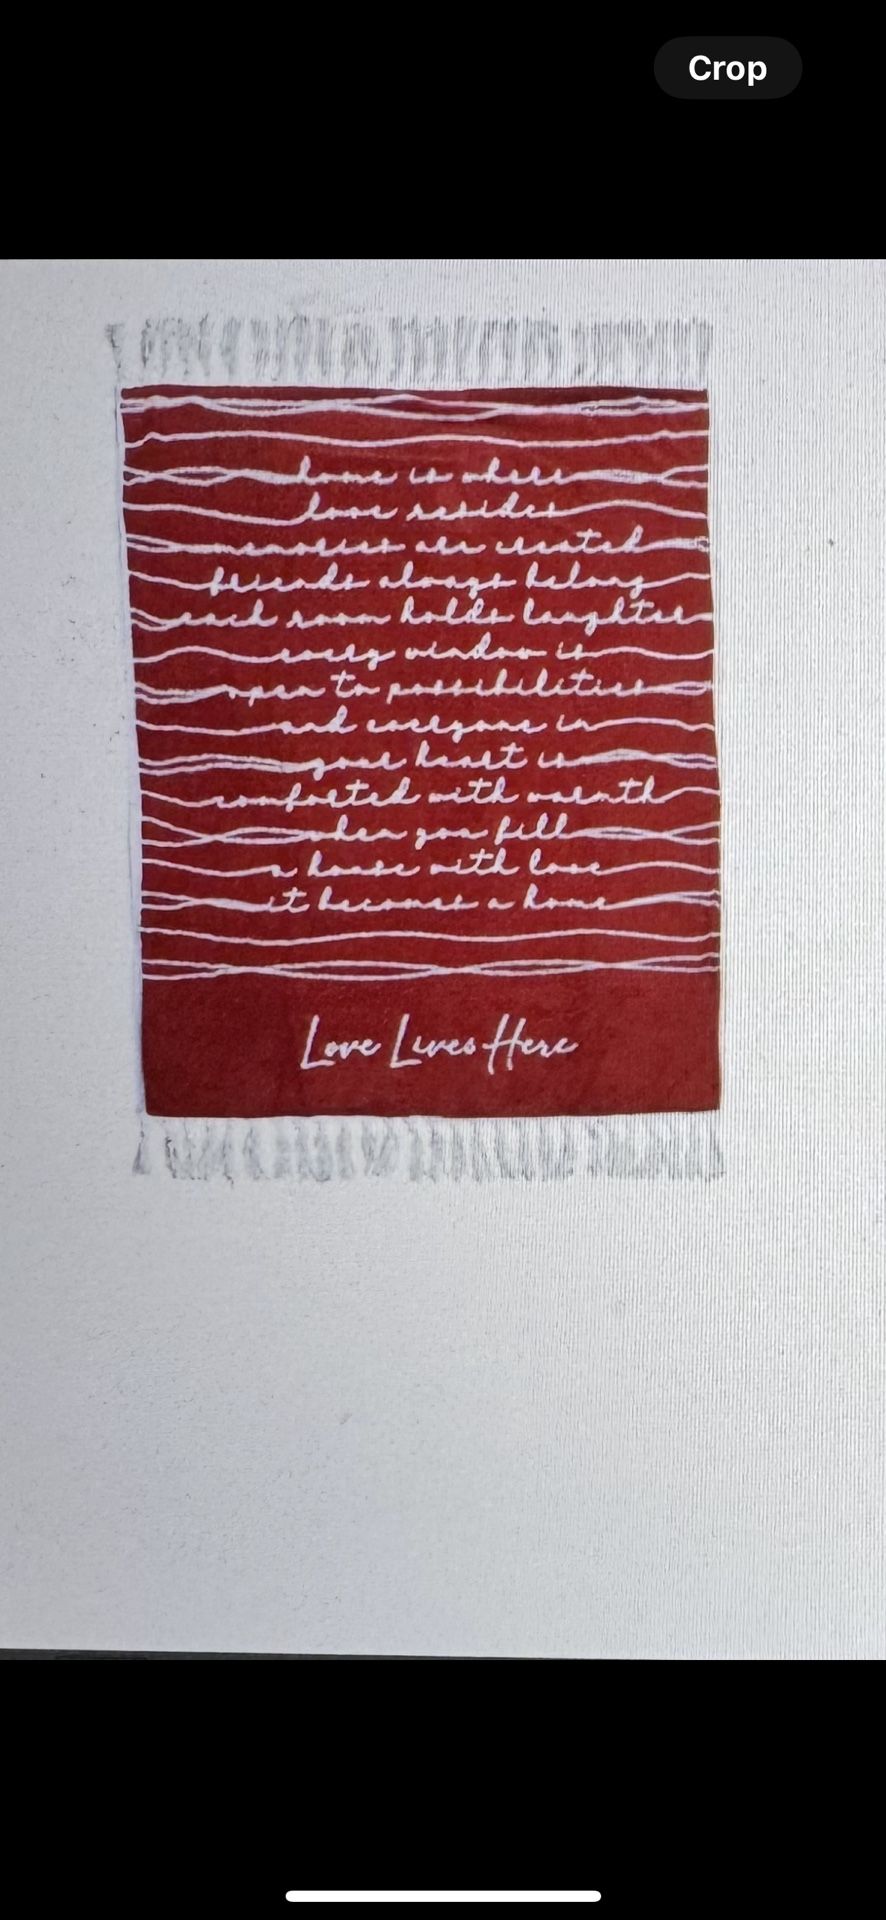 Crop
home is where
love resides
memories are created
friends always belong
each room holds laughter
every window is
open to possibilities
and everyone in
your heart is
comforted with warmth
when you fill
a house with love
it becomes a home
Love Lives Here